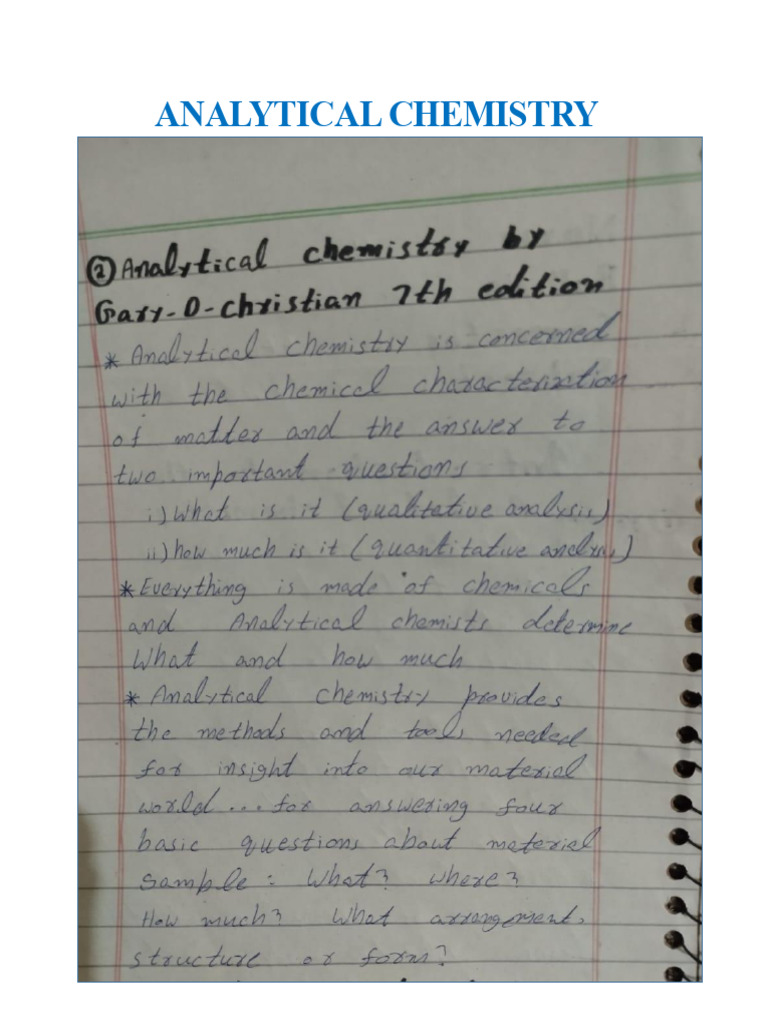 ANALYTICAL CHEMISTRY
② Analytical chemistry by
Gary-D-Christian 7th edition
* Analytical chemistry is concerned
with the chemical characterization
of matter and the answer to
two important questions
i) What is it (qualitative analysis)
ii) how much is it (quantitative analysis)
* Everything is made of chemicals
and Analytical chemists determine
What and how much
* Analytical chemistry provides
the methods and tools needed
for insight into our material
world...for answering four
basic questions about material
sample: What? where?
How much? What arrangement,
structure or form?